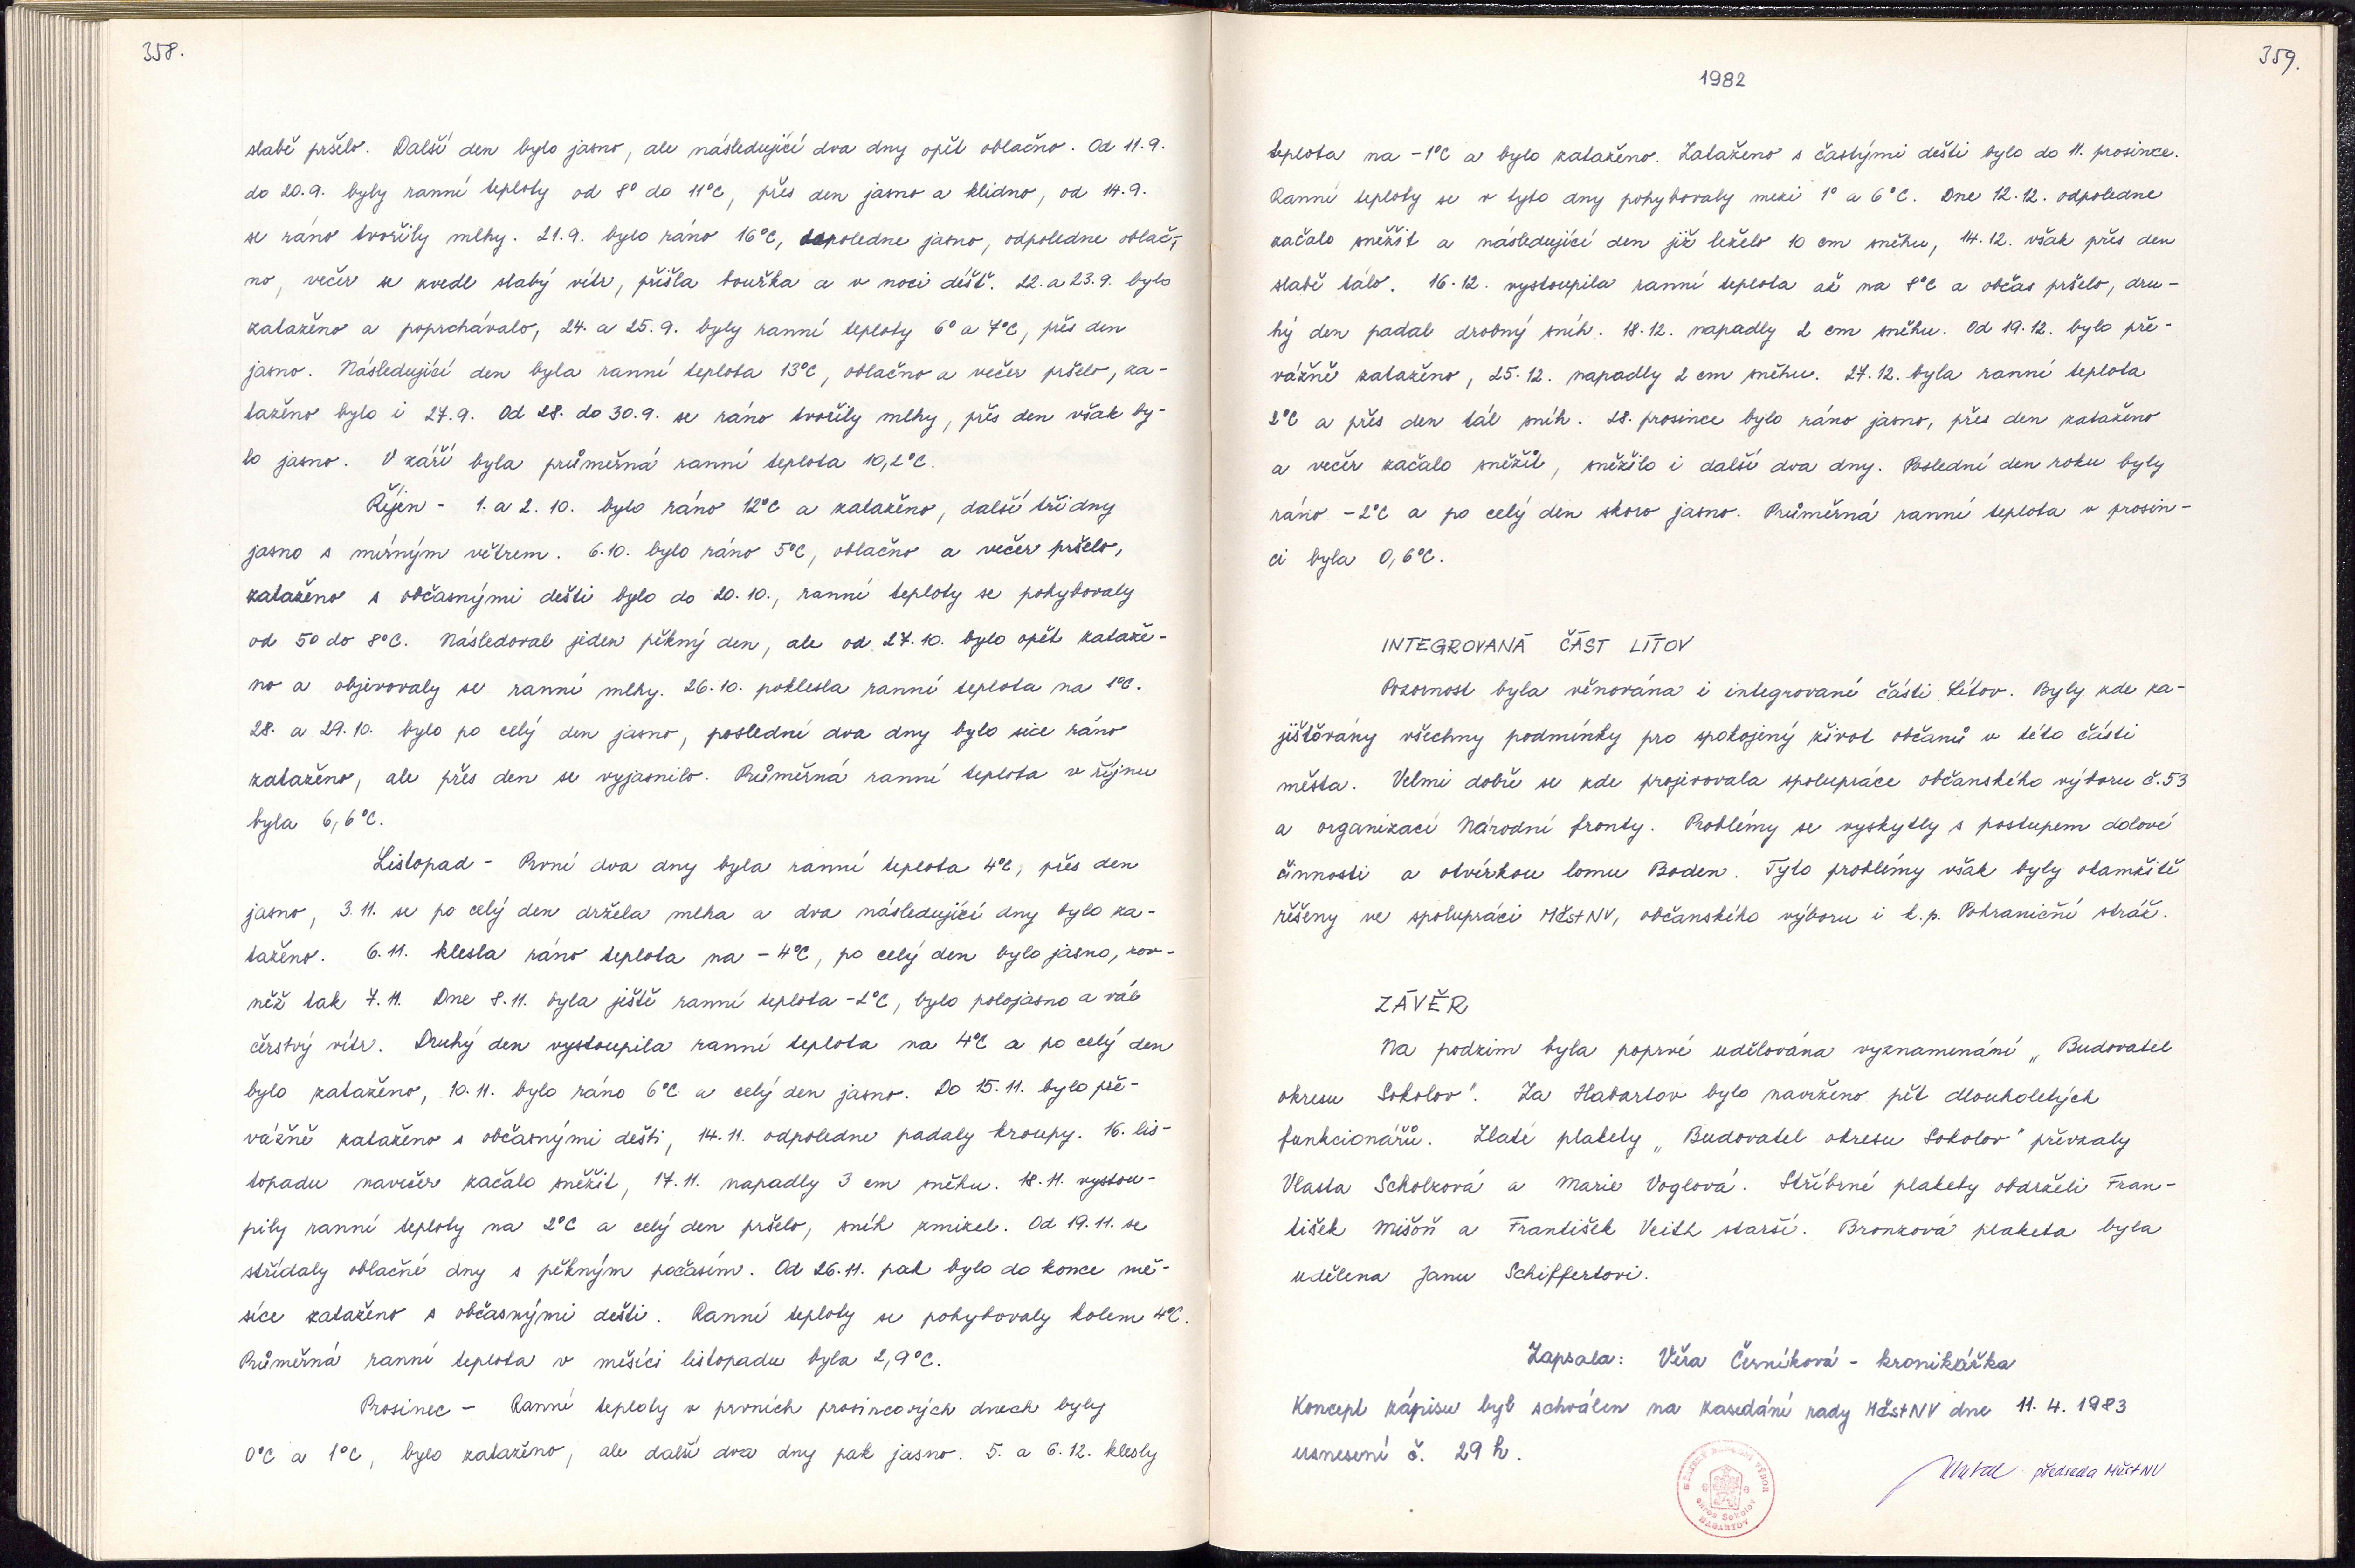 358.
slabě pršelo. Další den bylo jasno, ale následující dva dny opět oblačno. Od 11.9.
do 20.9. byly ranní teploty od 8° do 11°C, přes den jasno a klidno, od 14.9.
se ráno tvořily mlhy. 21.9. bylo ráno 16°C, dopoledne jasno, odpoledne oblač-
no, večer se zvedl slabý vítr, přišla bouřka a v noci déšť. 22. a 23.9. bylo
zataženo a poprchávalo, 24. a 25.9. byly ranní teploty 6° a 7°C, přes den
jasno. Následující den byla ranní teplota 13°C, oblačno a večer pršelo, za-
taženo bylo i 27.9. Od 28. do 30.9. se ráno tvořily mlhy, přes den však by-
lo jasno. V září byla průměrná ranní teplota 10,2°C.
Říjen - 1. a 2. 10. bylo ráno 12°C a zataženo, další tři dny
jasno s mírným větrem. 6.10. bylo ráno 5°C, oblačno a večer pršelo,
zataženo s občasnými dešti bylo do 20.10., ranní teploty se pohybovaly
od 5° do 8°C. Následoval jeden pěkný den, ale od 27.10. bylo opět zataže-
no a objevovaly se ranní mlhy. 26.10. poklesla ranní teplota na 1°C.
28. a 29.10. bylo po celý den jasno, poslední dva dny bylo sice ráno
zataženo, ale přes den se vyjasnilo. Průměrná ranní teplota v říjnu
byla 6,6°C.
Listopad - První dva dny byla ranní teplota 4°C, přes den
jasno, 3.11. se po celý den držela mlha a dva následující dny bylo za-
taženo. 6.11. klesla ráno teplota na -4°C, po celý den bylo jasno, rov-
něž tak 7.11. Dne 8.11. byla ještě ranní teplota -2°C, bylo polojasno a vál
čerstvý vítr. Druhý den vystoupila ranní teplota na 4°C a po celý den
bylo zataženo, 10.11. bylo ráno 6°C a celý den jasno. Do 15.11. bylo pře-
vážně zataženo s občasnými dešti, 14.11. odpoledne padaly kroupy. 16. lis-
topadu navečer začalo sněžit, 17.11. napadly 3 cm sněhu. 18.11. vystou-
pily ranní teploty na 2°C a celý den pršelo, sníh zmizel. Od 19.11. se
střídaly oblačné dny s pěkným počasím. Od 26.11. pak bylo do konce mě-
síce zataženo s občasnými dešti. Ranní teploty se pohybovaly kolem 4°C.
Průměrná ranní teplota v měsíci listopadu byla 2,9°C.
Prosinec - Ranní teploty v prvních prosincových dnech byly
0°C a 1°C, bylo zataženo, ale další dva dny pak jasno. 5. a 6.12. klesly
359.
1982
teplota na -1°C a bylo zataženo. Zataženo s častými dešti bylo do 11. prosince.
Ranní teploty se v tyto dny pohybovaly mezi 1° a 6°C. Dne 12.12. odpoledne
začalo sněžit a následující den již leželo 10 cm sněhu, 14.12. však přes den
slabě tálo. 16.12. vystoupila ranní teplota až na 8°C a občas pršelo, dru-
hý den padal drobný sníh. 18.12. napadly 2 cm sněhu. Od 19.12. bylo pře-
vážně zataženo, 25.12. napadly 2 cm sněhu. 27.12. byla ranní teplota
2°C a přes den tál sníh. 28. prosince bylo ráno jasno, přes den zataženo
a večer začalo sněžit, sněžilo i další dva dny. Poslední den roku byly
ráno -2°C a po celý den skoro jasno. Průměrná ranní teplota v prosin-
ci byla 0,6°C.
INTEGROVANÁ ČÁST LÍTOV
Pozornost byla věnována i integrované části Lítov. Byly zde za-
jišťovány všechny podmínky pro spokojený život občanů v této části
města. Velmi dobře se zde projevovala spolupráce občanského výboru č.53
a organizací Národní fronty. Problémy se vyskytly s postupem dolové
činnosti a otvírkou lomu Boden. Tyto problémy však byly okamžitě
řešeny ve spolupráci MěstNV, občanského výboru i k.p. Pohraniční stráž.
ZÁVĚR
Na podzim byla poprvé udělována vyznamenání „Budovatel
okresu Sokolov". Za Habartov bylo navrženo pět dlouholetých
funkcionářů. Zlaté plakety „Budovatel okresu Sokolov" převzaly
Vlasta Scholzová a Marie Voglová. Stříbrné plakety obdrželi Fran-
tišek Mišoň a František Veith starší. Bronzová plaketa byla
udělena Janu Schiffertovi.
Zapsala: Věra Černíková - kronikářka
Koncept zápisu byl schválen na zasedání rady MěstNV dne 11.4.1983
usnesení č. 29 h.
předseda MěstNV
MĚSTSKÝ NÁRODNÍ VÝBOR
okres Sokolov
HABARTOV